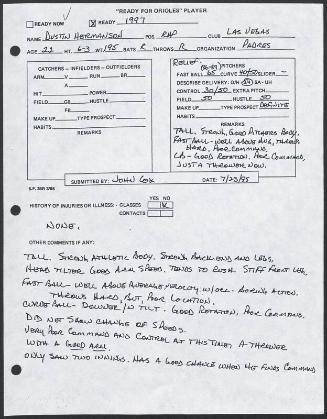 "READY FOR ORIOLES" PLAYER
READY NOW READY 1997
NAME DUSTIN HERMANSON POS. RHP CLUB LAS VEGAS
AGE 22 HT. 6-3 WT. 195 BATS R THROWS R ORGANIZATION PADRES
CATCHERS - INFIELDERS - OUTFIELDERS
ARM V RUN BR
A A
HIT POWER
FIELD HUSTLE
GB FB
MAKE UP TYPE PROSPECT
HABITS
REMARKS
RELIEF PITCHERS
FAST BALL 60 CURVE 40/50 SLIDER —
DESCRIBE DELIVERY: O/H 3/4 SA - U/H
CONTROL 30/50 EXTRA PITCH
FIELD 50 HUSTLE 50
MAKE UP TYPE PROSPECT DEFINITE
HABITS
REMARKS
TALL, STRONG, GOOD PITCHERS BODY,
FAST BALL - WELL ABOVE AVG, THROWS
HARD, POOR COMMAND.
GOOD ROTATION, POOR COMMAND,
JUST A THROWER NOW.
S.F. 35R 3/95
SUBMITTED BY: JOHN COX DATE: 7/23/95
YES NO
HISTORY OF INJURIES OR ILLNESS: - GLASSES
CONTACTS
NONE.
OTHER COMMENTS IF ANY:
TALL, STRONG, ATHLETIC BODY, STRONG BACK END AND LEGS,
HEAD TILTER GOOD ARM SPEED, TENDS TO RUSH STIFF FRONT LEG.
FAST BALL - WELL ABOVE AVERAGE VELOCITY W/OCC. BORING ACTION.
THROWS HARD, BUT, POOR LOCATION.
CURVE BALL - DOWNER/W TILT. GOOD ROTATION, POOR COMMAND.
DID NOT SHOW CHANGE OF SPEEDS.
VERY POOR COMMAND AND CONTROL AT THIS TIME. A THROWER
WITH A GOOD ARM.
ONLY SAW TWO INNINGS. HAS A GOOD CHANCE WHEN HE FINDS COMMAND